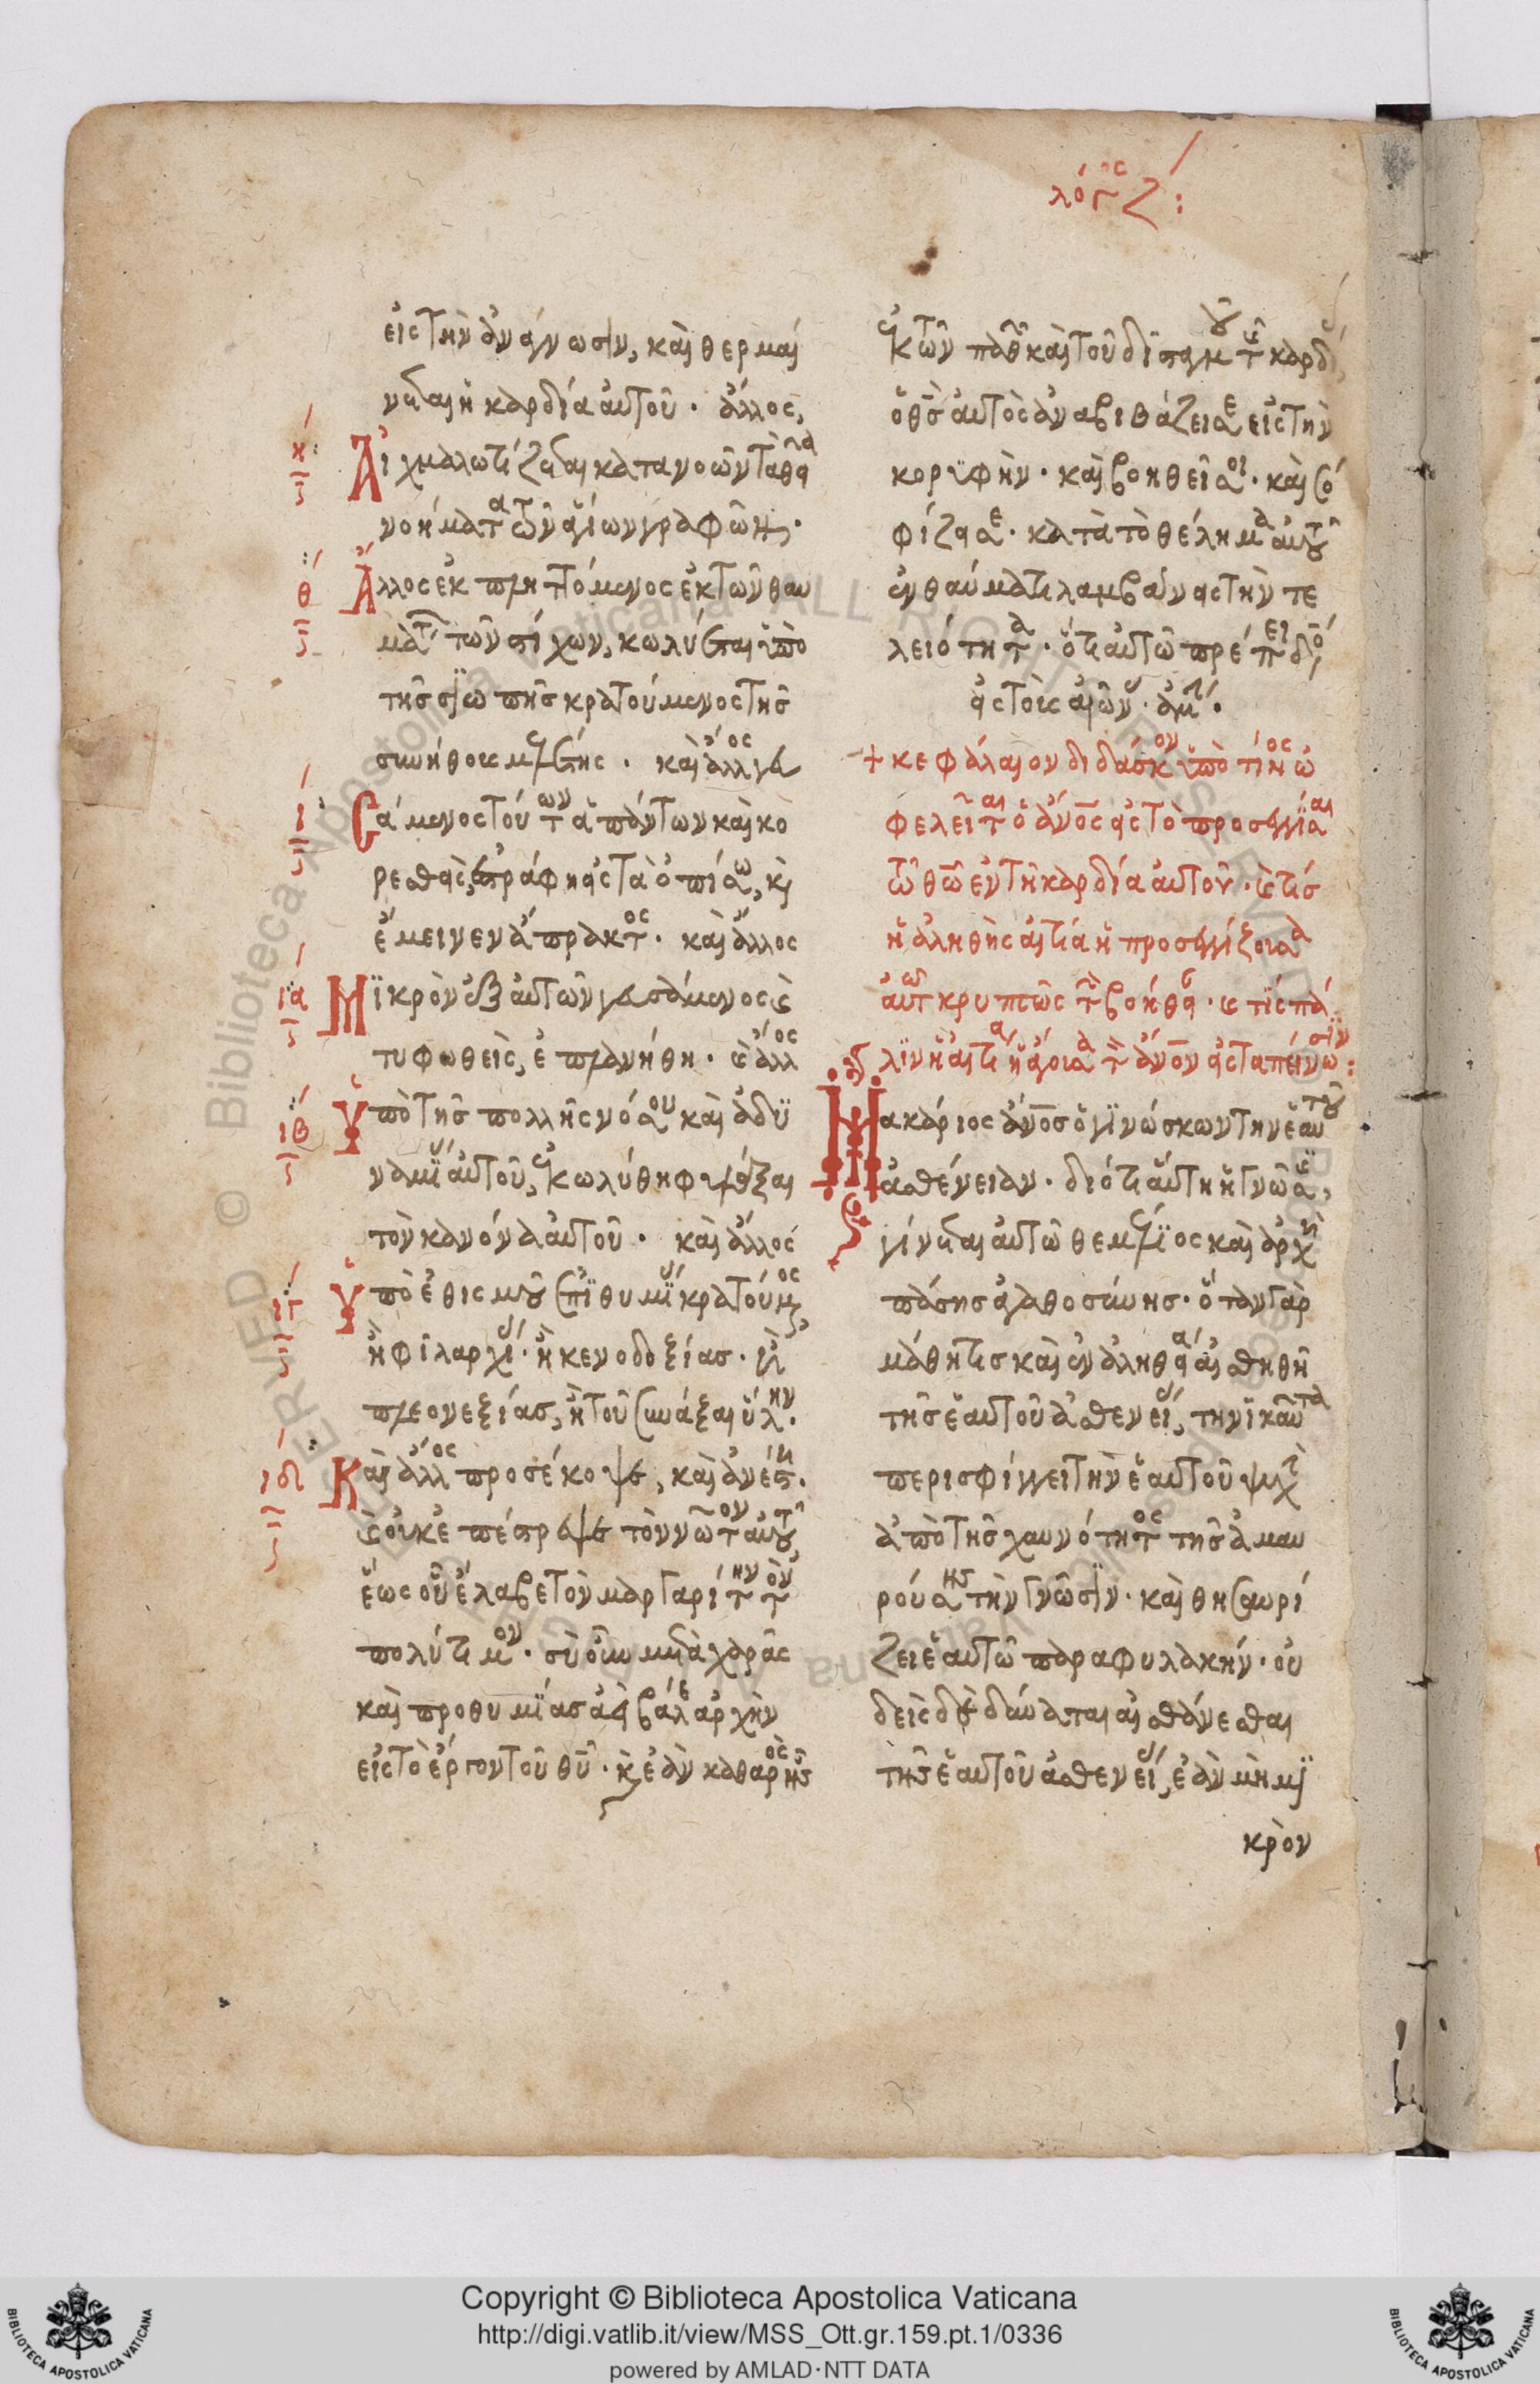 λόγος ζ:
εἰς τὴν ἀνάγνωσιν, καὶ θερμαί
νεται ἡ καρδία αὐτοῦ. ἄλλος,
η
Αἰχμαλωτίζεται κατανοῶν τὰ θεῖα
νοήματα τῶν ἁγίων γραφῶν.
θ
Ἄλλος ἐκπληττόμενος ἐκ τῶν θαυ
μάτων τῶν στίχων, κωλύεται ὑπὸ
τῆς σιωπῆς κρατούμενος τῆς
συνήθους αὐτῆς. καὶ ἄλλος γευ
ι
σάμενος τούτων ἁπάντων καὶ κο
ρεσθεὶς, ἐστράφη εἰς τὰ ὀπίσω, καὶ
ἔμεινεν ἄπρακτος. καὶ ἄλλος
ια
Μικρὸν ἐξ αὐτῶν γευσάμενος καὶ
τυφωθεὶς, ἐπλανήθη. καὶ ἄλλος
ιβ
Ὑπὸ τῆς πολλῆς νόσου καὶ ἀδυ
ναμίας αὐτοῦ, ἐκωλύθη φυλάξαι
τὸν κανόνα αὐτοῦ. καὶ ἄλλος
ιγ
Ὑπὸ ἐθισμοῦ ἐπιθυμίας κρατούμενος
ἢ φιλαρχίας. ἢ κενοδοξίας. ἢ
πλεονεξίας, ἢ τοῦ συνάξαι ὕλην.
ιδ
Καὶ ἄλλος προσέκοψε, καὶ ἀνέστη.
καὶ οὐκ ἐπέστρεψε τὸν νῶτον αὐτοῦ,
ἕως οὗ ἔλαβε τὸν μαργαρίτην τὸν
πολύτιμον. σὺ οὖν μετὰ χαρᾶς
καὶ προθυμίας ἀεὶ βάλε ἀρχὴν
εἰς τὸ ἔργον τοῦ θυ. καὶ ἐὰν καθαρὸς ἧς
ἐκ τῶν παθῶν καὶ τοῦ δισταγμοῦ τῆς καρδίας,
ὁ θς αὐτὸς ἀναβιβάζει σε εἰς τὴν
κορυφὴν. καὶ βοηθεῖ σοι. καὶ σο
φίζει σε. κατὰ τὸ θέλημα αὐτοῦ
ἐν θαύματι λαμβάνεις τὴν τε
λειότητα. ὅτι αὐτῶ πρέπει δόξα
εἰς τοὺς αἰῶνας. ἀμήν.
+ κεφάλαιον διδάσκον ὑπὸ τίνος ὠ
φελεῖται ὁ ἄνος εἰς τὸ προσεγγίσαι
τῶ θω ἐν τῆ καρδία αὐτοῦ. καὶ τίς
ἡ ἀληθὴς αἰτία ἡ προσεγγίζουσα
αὐτῶ κρυπτῶς τὴν βοήθειαν. καὶ τίς πά
λιν ἡ αἰτία ἡ ἄγουσα τὸν ἄνον εἰς ταπείνωσιν:
Μακάριος ἄνος ὁ γινώσκων τὴν ἑαυτοῦ
ἀσθένειαν. διότι αὕτη ἡ γνῶσις,
γίνεται αὐτῶ θεμέλιος καὶ ἀρχὴ
πάσης ἀγαθοσύνης. ὅταν γὰρ
μάθη τις καὶ ἐν ἀληθεία αἰσθηθῆ
τῆς ἑαυτοῦ ἀσθενείας, τηνικαῦτα
περισφίγγει τὴν ἑαυτοῦ ψυχὴν
ἀπὸ τῆς χαυνότητος τῆς ἀμαυ
ρούσης τὴν γνῶσιν. καὶ θησαυρί
ζει ἑαυτῶ παραφυλακήν. οὐ
δεὶς δὲ δύναται αἰσθάνεσθαι
τῆς ἑαυτοῦ ἀσθενείας, ἐὰν μὴ μι
κρὸν
Copyright © Biblioteca Apostolica Vaticana
http://digi.vatlib.it/view/MSS_Ott.gr.159.pt.1/0336
powered by AMLAD·NTT DATA